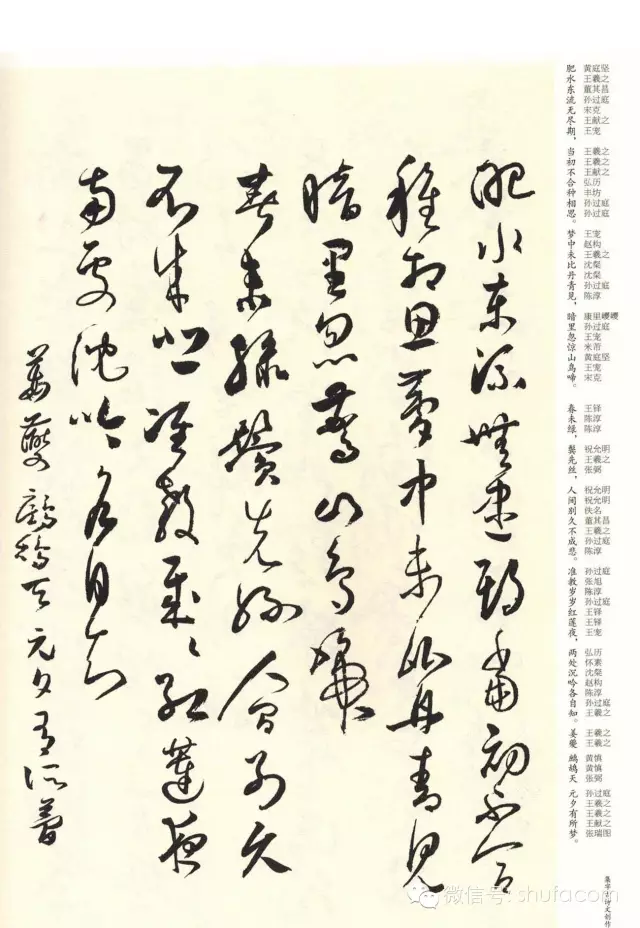 黄庭坚
王羲之
董其昌
孙过庭
宋克
王献之
王宠
王羲之
王羲之
王献之
弘历
丰坊
孙过庭
孙过庭
王宠
赵构
王羲之
沈粲
沈粲
孙过庭
陈淳
康里巎巎
孙过庭
王宠
米芾
黄庭坚
王宠
宋克
王铎
陈淳
陈淳
祝允明
王羲之
张弼
祝允明
祝允明
佚名
董其昌
王羲之
孙过庭
陈淳
孙过庭
张旭
陈淳
孙过庭
王铎
王铎
王宠
弘历
怀素
沈粲
赵构
陈淳
孙过庭
王羲之
王羲之
王羲之
黄慎
黄慎
张弼
孙过庭
王羲之
王羲之
王献之
张瑞图
肥水东流无尽期，当初不合种相思。梦中未比丹青见，暗里忽惊山鸟啼。春未绿，鬓先丝，人间别久不成悲。准教岁岁红莲夜，两处沉吟各自知。姜夔 鹧鸪天 元夕有所梦。
肥水東流無盡期當初不合
種相思夢中未比丹青見
暗里忽驚山鳥啼
春未綠鬢先絲人間別久
不成悲准教歲〻紅蓮夜
兩處沈吟各自知
姜夔鷓鴣天元夕有所夢
微信号: shufacom